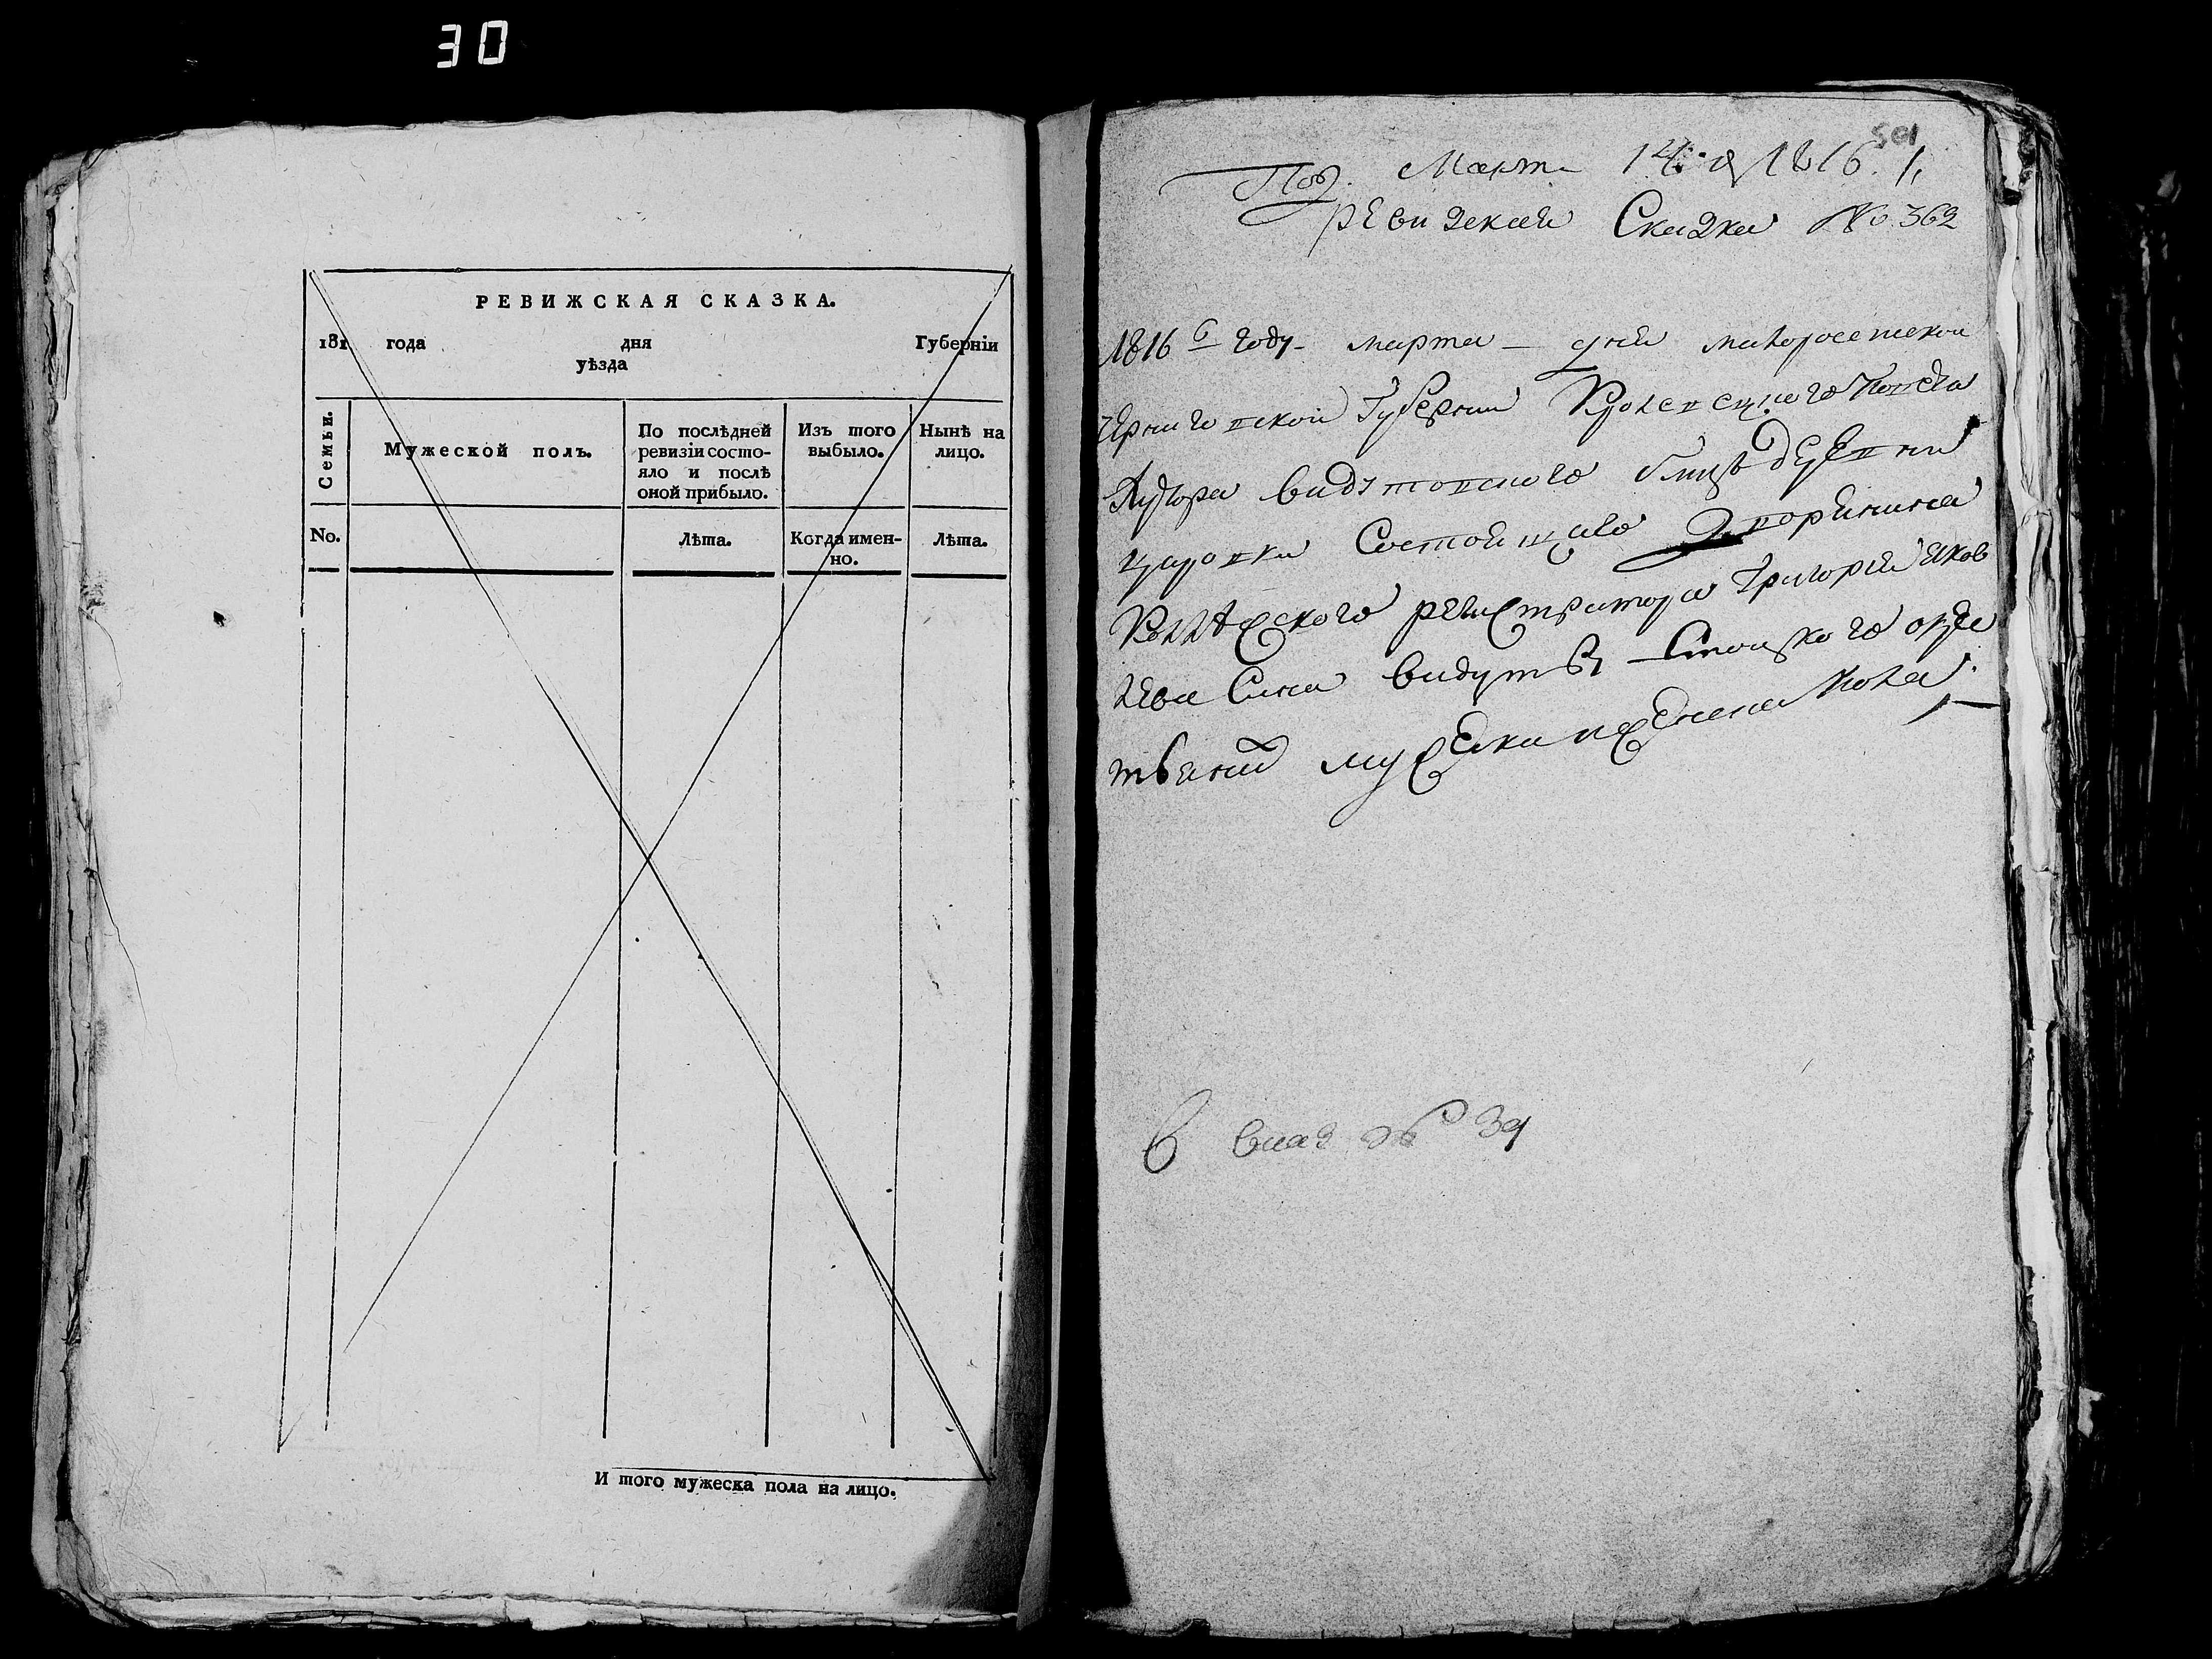 30
РЕВИЖСКАЯ СКАЗКА.
181 года дня Губерніи
уѣзда
Семьи.
Мужеской полъ.
По послѣдней ревизіи состояло и послѣ оной прибыло.
Изъ того выбыло.
Нынѣ на лицо.
No.
Лѣта.
Когда именно.
Лѣта.
И того мужеска пола на лицо.
501
Под. Марта 14 1816
ревизская Сказка № 362
1816 году марта дня малоросейской
черниговской Губернии Кролевецкого Повета
Хутора близь деревни
состоящаго дворянина
Коллежского регистратора Григория Яков
лева Сина
мужеска и женска пола
39